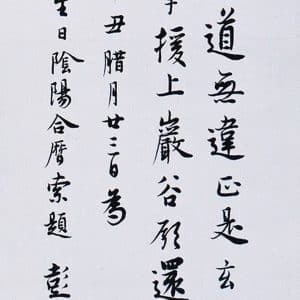 道無違正是玄
援上巖谷願還
丑臘月廿三日為
生日陰陽合曆索題 彭